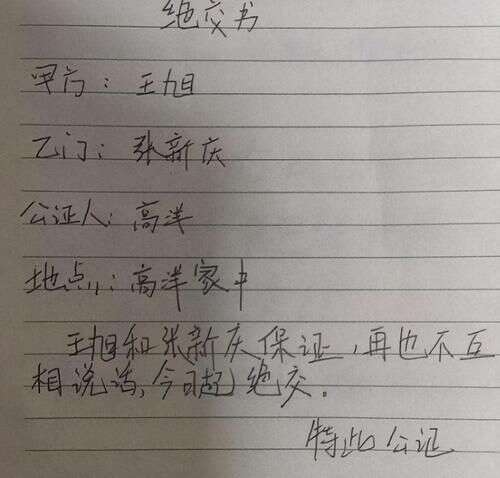 绝交书
甲方：王旭
乙门：张新庆
公证人：高洋
地点：高洋家中
王旭和张新庆保证，再也不互
相说话，今日起绝交。
特此公证